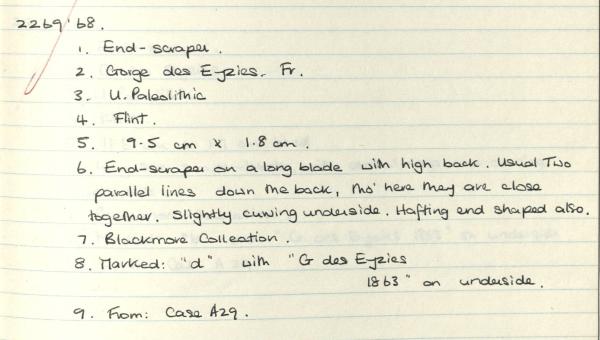 2269'68.
1. End-scraper.
2. Gorge des Eyzies. Fr.
3. U. Paleolithic
4. Flint.
5. 9.5 cm x 1.8 cm.
6. End-scraper on a long blade with high back. Usual Two
parallel lines down the back, tho' here they are close
together. Slightly curving underside. Hafting end shaped also.
7. Blackmore Collection.
8. Marked: "d" with "G des Eyzies
1863" on underside.
9. From: Case A29.